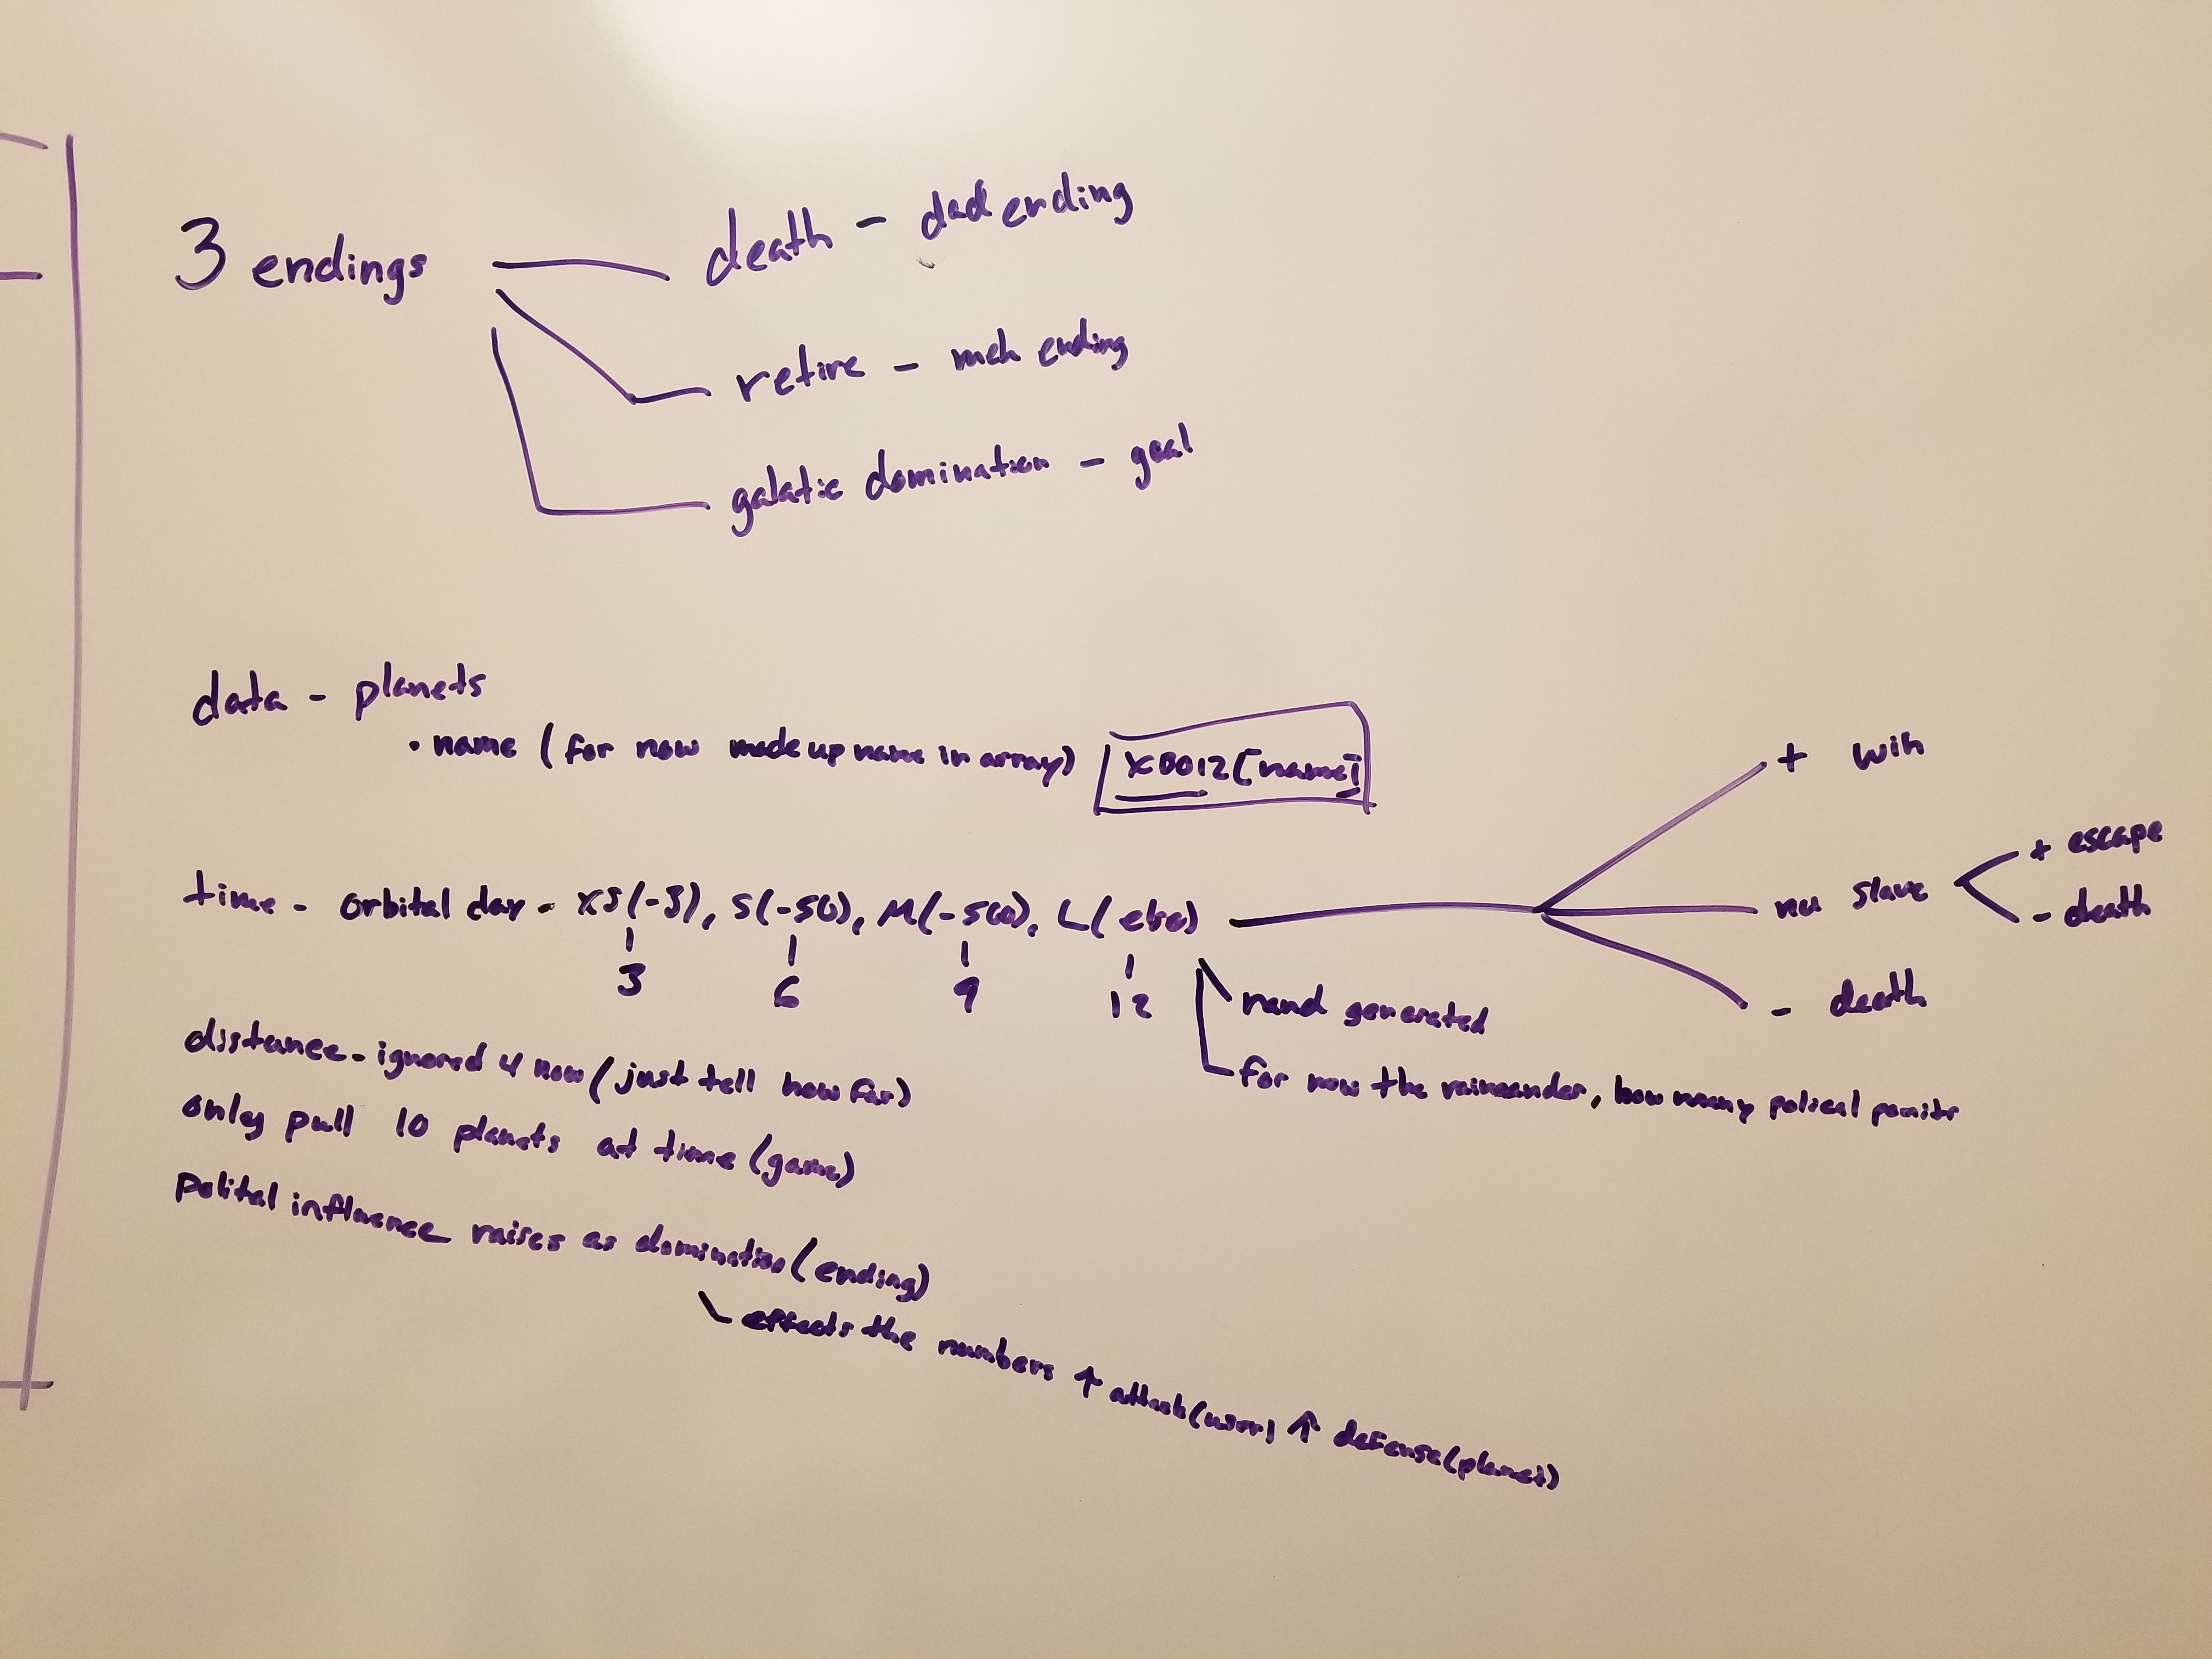 3 endings
death - dad ending
retire - meh ending
galatic domination - goal
data - planets
• name (for now made up name in array) X0012[name]
time - orbital day - XS(-5), S(-50), M(-500), L(else)
3 6 9 12
+ win
nu slave
+ escape
- death
- death
rand generated
for now the raimeander, how many polical points
distance - ignored 4 now (just tell how far)
only pull 10 planets at time (game)
Polital influence raises as domination (ending)
effects the numbers ↑ attack (user) ↑ defense (planet)